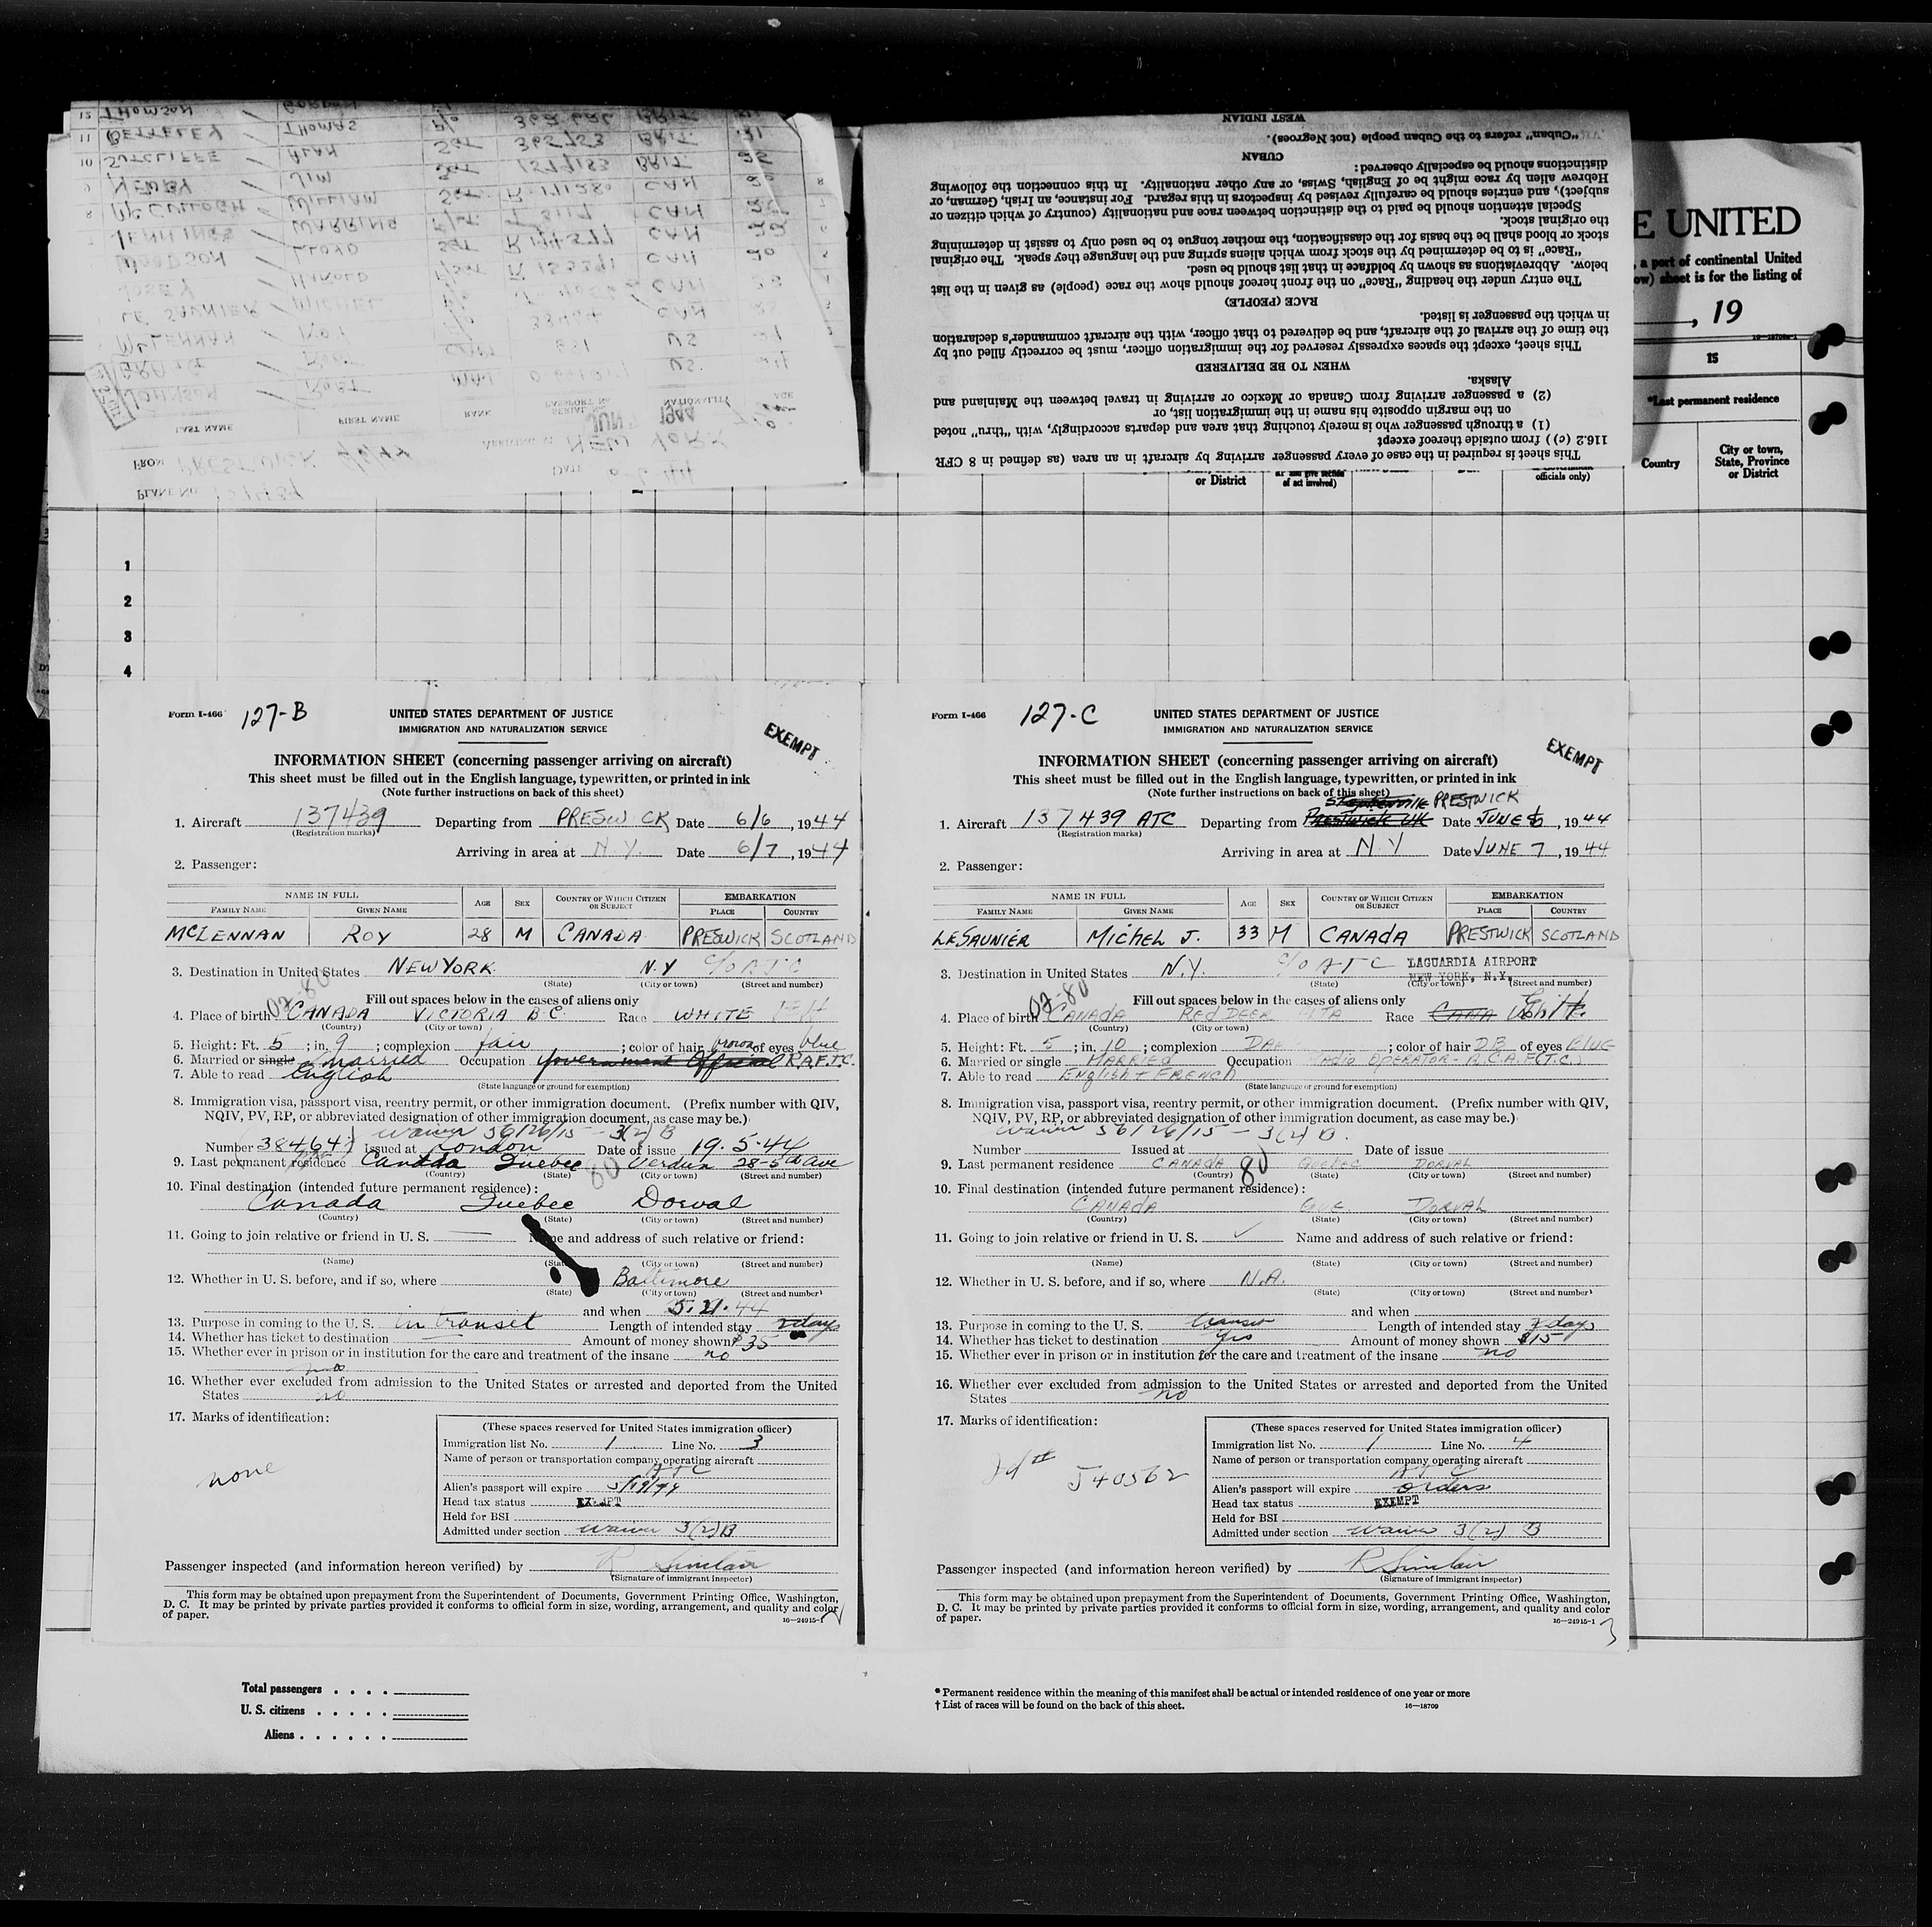 12 THOMSON / GORDON F/O 
11 BETTELEY / THOMAS F/O 365753 BRIT. 31
10 SUTCLIFFE / ALAN SGT 1577183 BRIT. 25
9 HENRY / JIM SGT. R.171280 CAN
8 McCULLOGH / WILLIAM CAN
JENNINGS / WARRING CAN
WOODSON / LLOYD SGT CAN 20
JOSEY / HAROLD CAN
LE SAUNIER / MICHEL CAN
McLENNAN / ROY 38464
JOHNSON / ROBT MAJ US.
LAST NAME FIRST NAME RANK PASSPORT NO. SERIAL NO. NATIONALITY AGE
FROM PRESTWICK ARRIVING AT NEW YORK
PLANE NO. 137439 DATE
JUN 1944
WEST INDIAN
"Cuban" refers to the Cuban people (not Negroes).
CUBAN
distinctions should be especially observed:
Hebrew alien by race might be of English, Swiss, or any other nationality. In this connection the following
subject), and entries should be carefully revised by inspectors in this regard. For instance, an Irish, German, or
Special attention should be paid to the distinction between race and nationality (country of which citizen or
the original stock.
stock or blood shall be the basis for the classification, the mother tongue to be used only to assist in determining
"Race" is to be determined by the stock from which aliens spring and the language they speak. The original
below. Abbreviations as shown by boldface in that list should be used.
The entry under the heading "Race" on the front hereof should show the race (people) as given in the list
RACE (PEOPLE)
in which the passenger is listed.
the time of the arrival of the aircraft, and be delivered to that officer, with the aircraft commander's declaration
This sheet, except the spaces expressly reserved for the immigration officer, must be correctly filled out by
WHEN TO BE DELIVERED
Alaska.
(2) a passenger arriving from Canada or Mexico or arriving in travel between the Mainland and
on the margin opposite his name in the immigration list, or
(1) a through passenger who is merely touching that area and departs accordingly, with "thru" noted
116.2 (c) ) from outside thereof except
This sheet is required in the case of every passenger arriving by aircraft in an area (as defined in 8 CFR
E UNITED
, a part of continental United
ow) sheet is for the listing of
, 19
15
*Last permanent residence
Country
City or town, State, Province or District
or District
of act involved)
officials only)
1
2
3
4
Form I-466 127-B
UNITED STATES DEPARTMENT OF JUSTICE
IMMIGRATION AND NATURALIZATION SERVICE
EXEMPT
INFORMATION SHEET (concerning passenger arriving on aircraft)
This sheet must be filled out in the English language, typewritten, or printed in ink
(Note further instructions on back of this sheet)
1. Aircraft 137439 Departing from PRESWICK Date 6/6, 1944
(Registration marks)
Arriving in area at N.Y. Date 6/7, 1944
2. Passenger:
NAME IN FULL AGE SEX COUNTRY OF WHICH CITIZEN OR SUBJECT EMBARKATION
FAMILY NAME GIVEN NAME PLACE COUNTRY
McLENNAN ROY 28 M CANADA PRESWICK SCOTLAND
3. Destination in United States NEW YORK N.Y C/O ATC
(State) (City or town) (Street and number)
Fill out spaces below in the cases of aliens only
4. Place of birth CANADA VICTORIA B C Race WHITE
(Country) (City or town)
5. Height: Ft. 5; in. 9; complexion fair; color of hair brown of eyes blue
6. Married or single married Occupation Government Official R.A.F.T.C.
7. Able to read English
(State language or ground for exemption)
8. Immigration visa, passport visa, reentry permit, or other immigration document. (Prefix number with QIV,
NQIV, PV, RP, or abbreviated designation of other immigration document, as case may be.)
waiver 56126/15 - 3(2) B
Number 38464 Issued at London Date of issue 19.5.44
9. Last permanent residence Canada Quebec 80 Verdun 28-5th Ave
(Country) (State) (City or town) (Street and number)
10. Final destination (intended future permanent residence):
Canada Quebec Dorval
(Country) (State) (City or town) (Street and number)
11. Going to join relative or friend in U. S. — Name and address of such relative or friend:
(Name) (State) (City or town) (Street and number)
12. Whether in U. S. before, and if so, where Baltimore
(State) (City or town) (Street and number)
and when 5.21.44
13. Purpose in coming to the U. S. in transit Length of intended stay 2 days
14. Whether has ticket to destination — Amount of money shown $35
15. Whether ever in prison or in institution for the care and treatment of the insane no
no
16. Whether ever excluded from admission to the United States or arrested and deported from the United
States no
17. Marks of identification:
none
(These spaces reserved for United States immigration officer)
Immigration list No. 1 Line No. 3
Name of person or transportation company operating aircraft
ATC
Alien's passport will expire 5/19/49
Head tax status EXEMPT
Held for BSI
Admitted under section waiver 3(2) B
Passenger inspected (and information hereon verified) by R Sinclair
(Signature of immigrant inspector)
This form may be obtained upon prepayment from the Superintendent of Documents, Government Printing Office, Washington,
D. C. It may be printed by private parties provided it conforms to official form in size, wording, arrangement, and quality and color
of paper. 16—24915-1
Form I-466 127-C
UNITED STATES DEPARTMENT OF JUSTICE
IMMIGRATION AND NATURALIZATION SERVICE
EXEMPT
INFORMATION SHEET (concerning passenger arriving on aircraft)
This sheet must be filled out in the English language, typewritten, or printed in ink
(Note further instructions on back of this sheet)
Stephenville PRESTWICK
1. Aircraft 137439 ATC Departing from Prestwick UK Date JUNE 6, 1944
(Registration marks)
Arriving in area at N.Y Date JUNE 7, 1944
2. Passenger:
NAME IN FULL AGE SEX COUNTRY OF WHICH CITIZEN OR SUBJECT EMBARKATION
FAMILY NAME GIVEN NAME PLACE COUNTRY
LESAUNIER MICHEL J. 33 M CANADA PRESTWICK SCOTLAND
3. Destination in United States N.Y. C/O ATC LAGUARDIA AIRPORT
NEW YORK, N.Y.
(State) (City or town) (Street and number)
Fill out spaces below in the cases of aliens only
4. Place of birth CANADA RED DEER ALTA Race White
(Country) (City or town)
5. Height: Ft. 5; in. 10; complexion DARK; color of hair DB of eyes BLUE
6. Married or single MARRIED Occupation RADIO OPERATOR - R.C.A.F. (T.C.)
7. Able to read ENGLISH + FRENCH
(State language or ground for exemption)
8. Immigration visa, passport visa, reentry permit, or other immigration document. (Prefix number with QIV,
NQIV, PV, RP, or abbreviated designation of other immigration document, as case may be.)
waiver 56126/15 - 3(2) B.
Number Issued at Date of issue
9. Last permanent residence CANADA 80 QUEBEC DORVAL
(Country) (State) (City or town) (Street and number)
10. Final destination (intended future permanent residence):
CANADA QUE. DORVAL
(Country) (State) (City or town) (Street and number)
11. Going to join relative or friend in U. S. ✓ Name and address of such relative or friend:
(Name) (State) (City or town) (Street and number)
12. Whether in U. S. before, and if so, where N.A.
(State) (City or town) (Street and number)
and when
13. Purpose in coming to the U. S. transit Length of intended stay 2 days
14. Whether has ticket to destination Yes Amount of money shown $15
15. Whether ever in prison or in institution for the care and treatment of the insane no
16. Whether ever excluded from admission to the United States or arrested and deported from the United
States no
17. Marks of identification:
Id # J40562
(These spaces reserved for United States immigration officer)
Immigration list No. 1 Line No. 4
Name of person or transportation company operating aircraft
ATC
Alien's passport will expire orders
Head tax status EXEMPT
Held for BSI
Admitted under section waiver 3(2) B
Passenger inspected (and information hereon verified) by R Sinclair
(Signature of immigrant inspector)
This form may be obtained upon prepayment from the Superintendent of Documents, Government Printing Office, Washington,
D. C. It may be printed by private parties provided it conforms to official form in size, wording, arrangement, and quality and color
of paper. 16—24915-1
Total passengers . . . .
U. S. citizens . . . . .
Aliens . . . . . .
* Permanent residence within the meaning of this manifest shall be actual or intended residence of one year or more
† List of races will be found on the back of this sheet. 16—18709